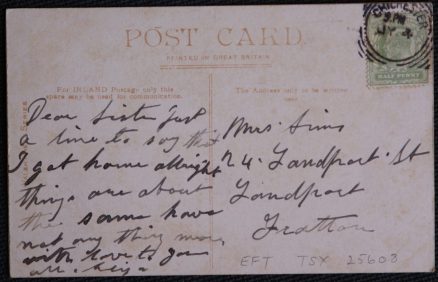 POST CARD.
PRINTED IN GREAT BRITAIN
For INLAND Postage only this
space may be used for communication.
The Address only to be written
here
CHICHESTER
9 PM
HALF PENNY
Dear Sister Just
a line to say that
I got home allright
things are about
the same have
not any thing more
with love to you
all.
Mrs Sims
24. Landport St
Landport
Fratton
EFT TSX 25603